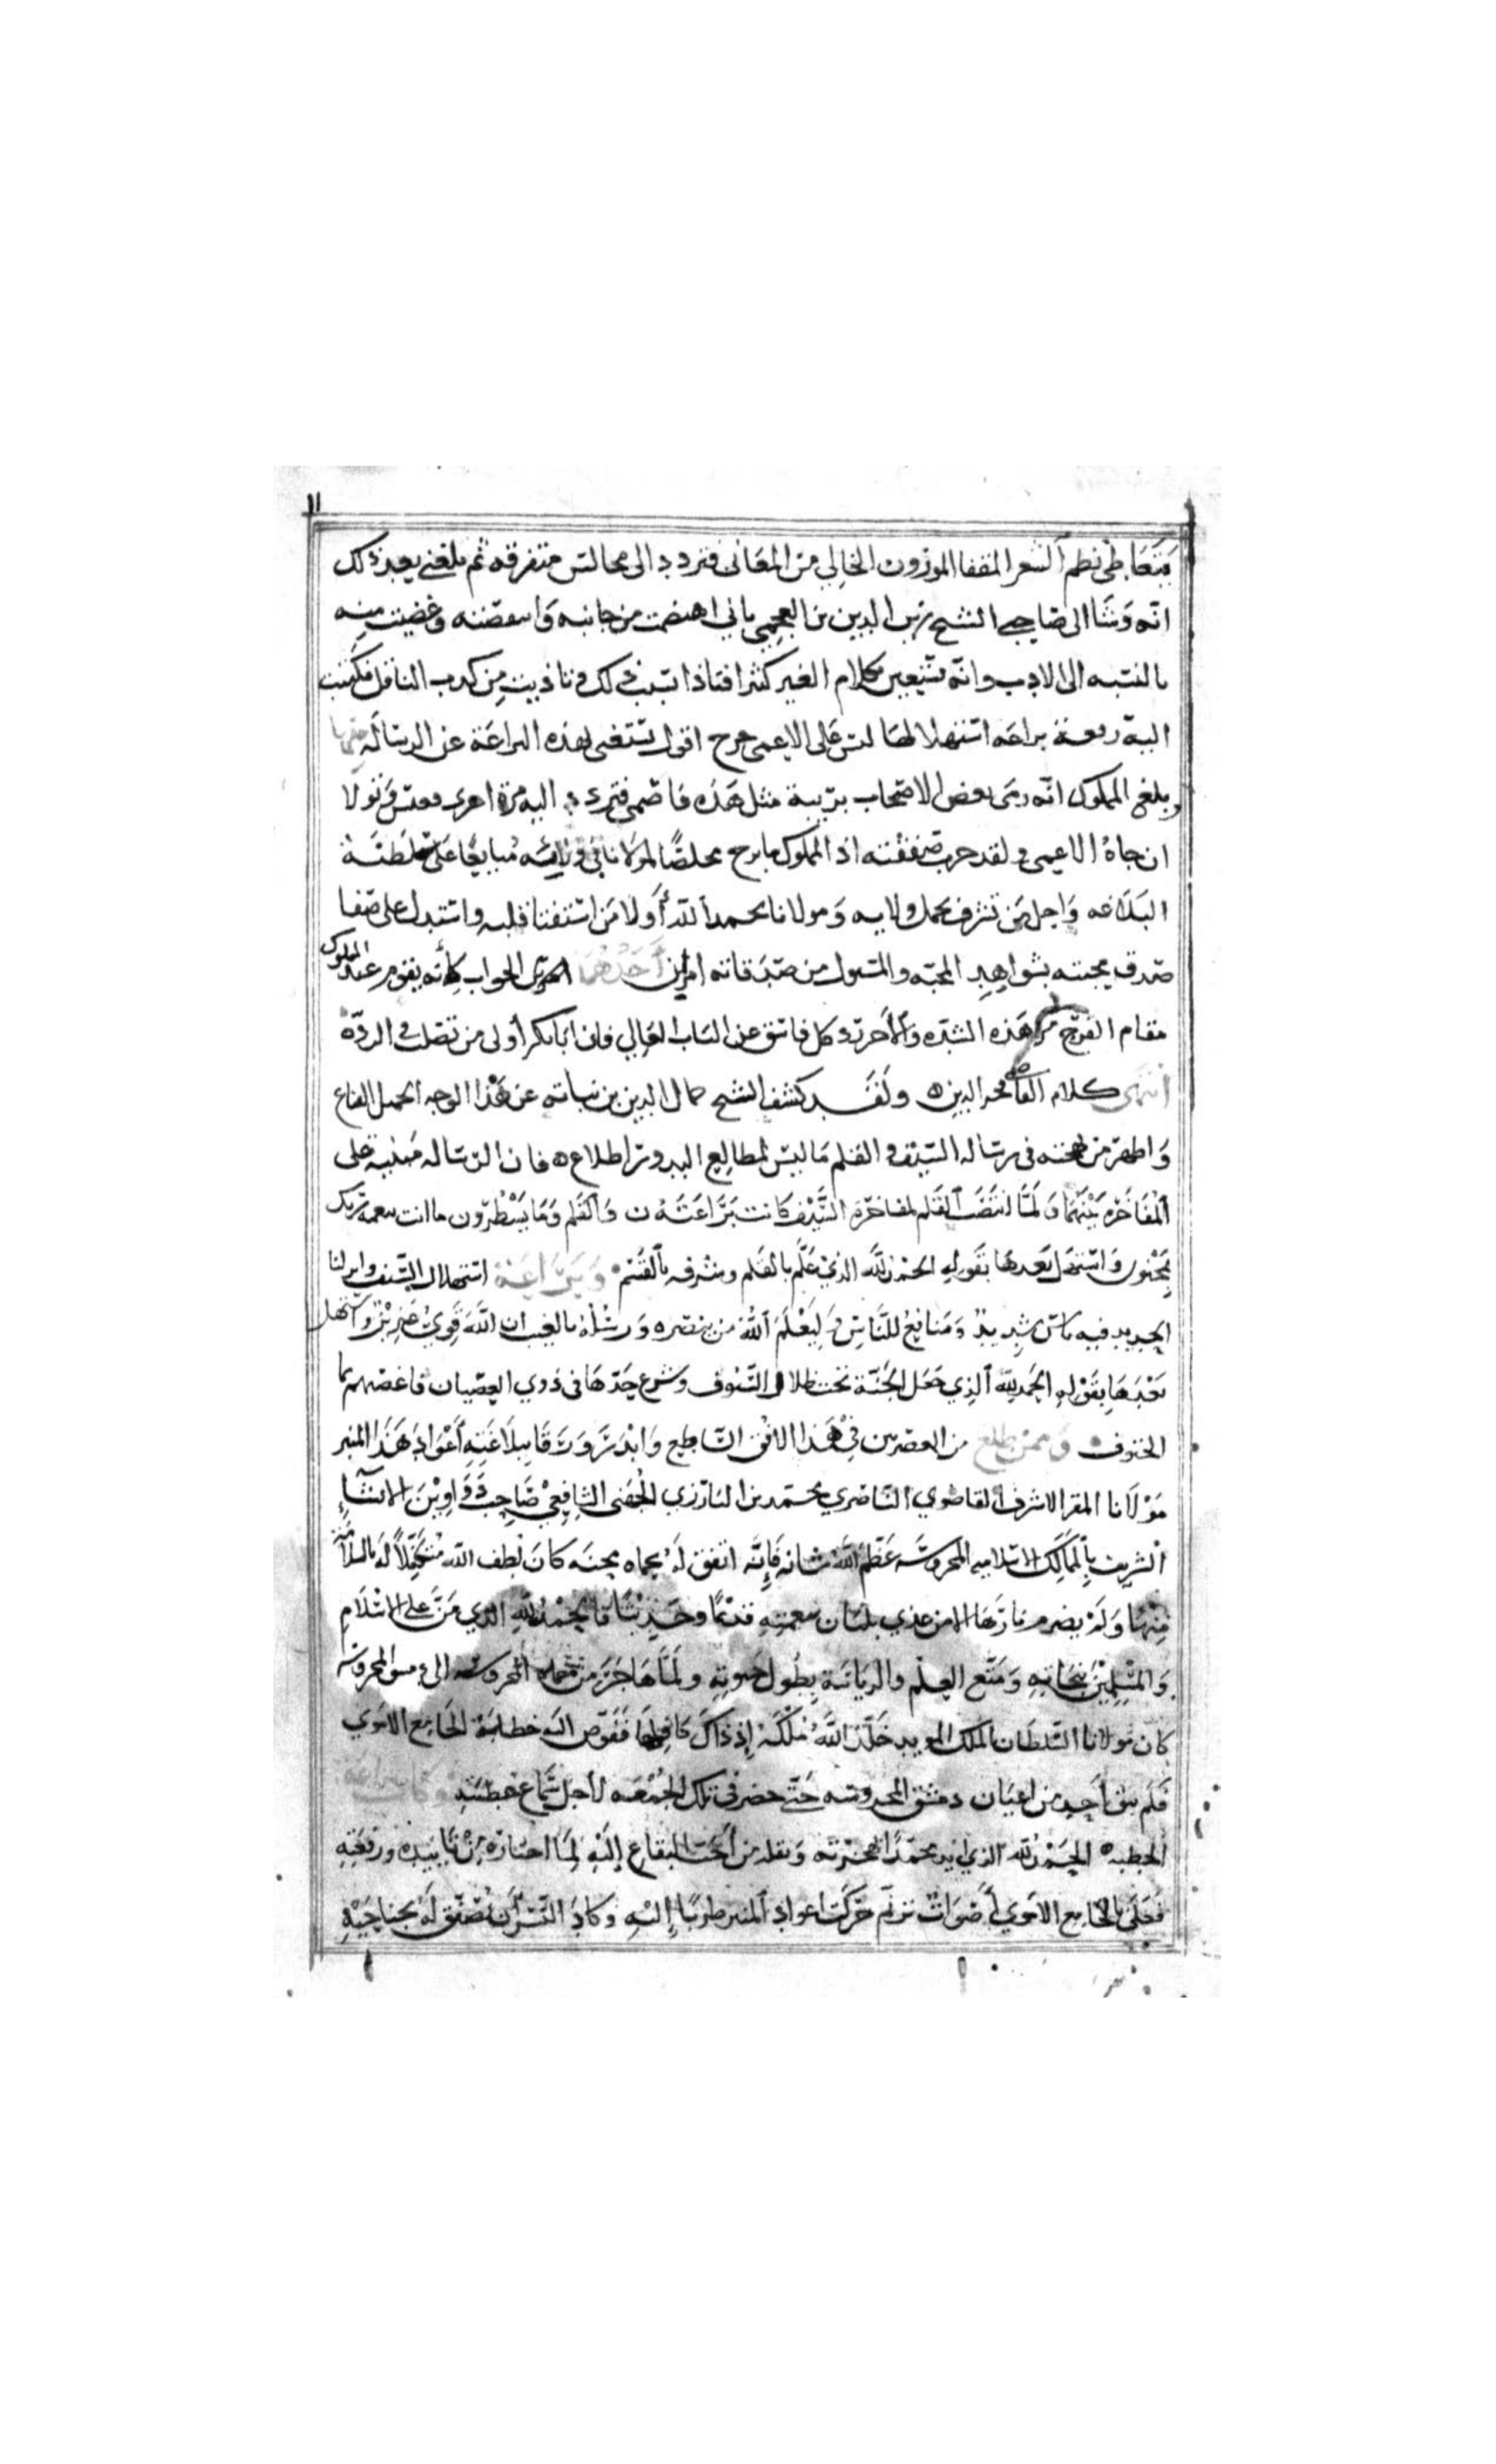 ١١
يتعاطى نظم الشعر المقفا الموزون الخالي من المعاني فتردد الى مجالس متفرقه ثم بلغني بعد ذلك
انه وشا الى صاحبي الشيخ زين الدين بن العجمي باني اهتضمت من جانبه واستنقصته وغضيت منه
بالنسبه الى الادب وانه يستعين بكلام الغير كثيرا فتاذا بسبب ذلك وتاذيت من كذب الناقل فكتبت
اليه رقعة براعة استهلالها ليس على الاعمى حرج اقول يستغنى بهذه البراعة عن الرسالة
وبلغ المملوك انه رمى بعض الاصحاب بريبة مثل هذه فاصمى فتردد اليه مرة اخرى فعبس وتولا
ان جاه الاعمى ولقد خسرت صفقته اذ المملوك ما برح مخلصا لمولانا في ولائه مبايعا على سلطنة
البلاغه واجل من تشرف بحمل ولايه ومولانا بحمد الله أولا من استفتا قلبه واستدل على صفا
صدق محبته بشواهد المحبه والمسول من صدقاته امران أحدهما الجواب فانه يقوم عند المملوك
مقام الفرج من هذه الشده والآخر رد كل فاسق عن الباب العالي فان ابا بكر أولى من تصلب في الردة
انتهى كلام القاضي فخر الدين ولقد كشف الشيخ جمال الدين بن نباته عن هذا الوجه الجميل القناع
واظهر من بهجته في رسالة السيف والقلم ما ليس لمطالع البدور اطلاع فان الرسالة مبنية على
المفاخرة بينهما ولما انتصب القلم لمفاخرة السيف كانت براعته ن والقلم وما يسطرون ما انت بنعمة ربك
بمجنون واستهل بعدها بقوله الحمد لله الذي علم بالقلم وشرفه بالقسم وبراعة استهلال السيف وانزلنا
الحديد فيه باس شديد ومنافع للناس وليعلم الله من ينصره ورسله بالغيب ان الله قوي عزيز واستهل
بعدها بقوله الحمد لله الذي جعل الجنة تحت ظلال السيوف وشرع حدها في ذوي العصيان فاغصهم بما
الحتوف وممن طلع من العصريين في هذا الافق الساطع وابدر ورقا ببلاغته أعواد هذا المنبر
مولانا المقر الاشرف القاضوي الناصري محمد بن البارزي الجهني الشافعي صاحب دواوين الانشاء
الشريف بالممالك الاسلاميه المحروسه عظم الله شانه فإنه اتفق له بحماه محنه كان لطف الله متكفلا له بالسلامة
منها ولم يضرم نارها الا من غذي بلبان نعمته قديما وحديثا فالحمد لله الذي من على الاسلام
والمسلمين بنجاته ومتع العلم والرياسة بطول حيوته ولما هاجر من حماه المحروسه الى دمشق المحروسه
كان مولانا السلطان الملك المويد خلد الله ملكه إذ ذاك كافلها ففوض اليه خطابة الجامع الاموي
فلم يبق أحد من اعيان دمشق المحروسه حتى حضر في تلك الجمعه لأجل سماع خطبته وكانت براعة
الخطبة الحمد لله الذي ايد محمدا بهجرته ونقله من أحب البقاع إليه لما اختاره من تاييده ورفعته
فحلى بالجامع الاموي أصوات ترنم حركت اعواد المنبر طربا إليه وكاد النسر أن يصفق له بجناحيه